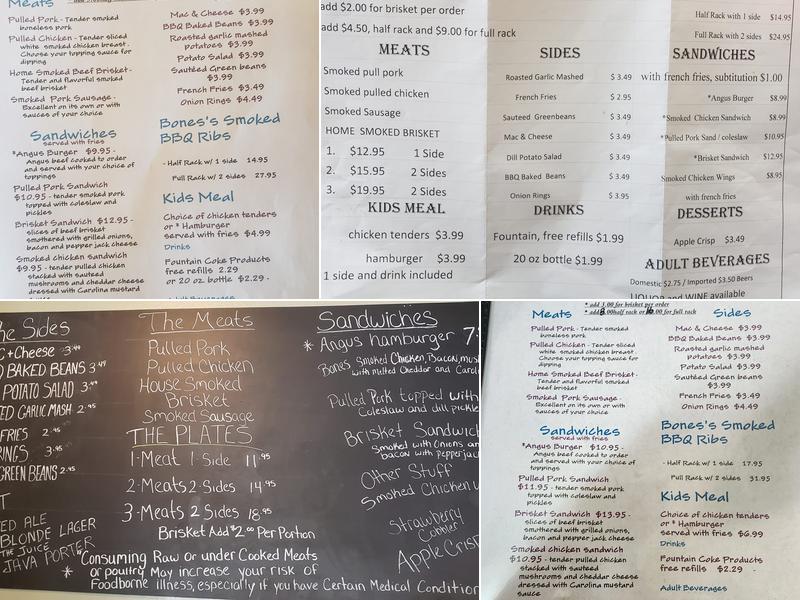 Meats
Pulled Pork - Tender smoked
boneless pork
Pulled Chicken - Tender sliced
white smoked chicken breast.
Choose your topping sauce for
dipping
Home Smoked Beef Brisket-
Tender and flavorful smoked
beef brisket
Smoked Pork Sausage-
Excellent on its own or with
sauces of your choice
Sandwiches
served with fries
*Angus Burger $9.95 -
Angus beef cooked to order
and served with your choice of
toppings
Pulled Pork Sandwich
$10.95 - tender smoked pork
topped with coleslaw and
pickles
Brisket Sandwich $12.95 -
slices of beef brisket
smothered with grilled onions,
bacon and pepper jack cheese
Smoked chicken sandwich
$9.95 - tender pulled chicken
stacked with sauteed
mushrooms and cheddar cheese
dressed with Carolina mustard
Mac & Cheese $3.99
BBQ Baked Beans $3.99
Roasted garlic mashed
potatoes $3.99
Potato Salad $3.99
Sautéed Green beans
$3.99
French Fries $3.49
Onion Rings $4.49
Bones's Smoked
BBQ Ribs
- Half Rack w/ 1 side 14.95
Full Rack w/ 2 sides 27.95
Kids Meal
Choice of chicken tenders
or * Hamburger
served with fries $4.99
Drinks
Fountain Coke Products
free refills 2.29
or 20 oz bottle $2.29 -
Adult Beverages
add $2.00 for brisket per order
add $4.50, half rack and $9.00 for full rack
MEATS
Smoked pull pork
Smoked pulled chicken
Smoked Sausage
HOME SMOKED BRISKET
1. $12.95 1 Side
2. $15.95 2 Sides
3. $19.95 2 Sides
KIDS MEAL
chicken tenders $3.99
hamburger $3.99
1 side and drink included
SIDES
Roasted Garlic Mashed $ 3.49
French Fries $ 2.95
Sauteed Greenbeans $ 3.49
Mac & Cheese $ 3.49
Dill Potato Salad $ 3.49
BBQ Baked Beans $ 3.49
Onion Rings $ 3.95
DRINKS
Fountain, free refills $1.99
20 oz bottle $1.99
Half Rack with 1 side $14.95
Full Rack with 2 sides $24.95
SANDWICHES
with french fries, subtitution $1.00
*Angus Burger $8.99
*Smoked Chicken Sandwich $8.99
*Pulled Pork Sand / coleslaw $10.95
*Brisket Sandwich $12.95
Smoked Chicken Wings $8.95
with french fries
DESSERTS
Apple Crisp $3.49
ADULT BEVERAGES
Domestic $2.75 / Imported $3.50 Beers
LIQUOR and WINE available
he Sides
C + Cheese 3.49
BAKED BEANS 3.49
POTATO SALAD 3.49
ED GARLIC MASH 2.95
FRIES 2.95
RINGS 3.95
GREEN BEANS 2.95
T
ED ALE
BLONDE LAGER
THE JUICE
JAVA PORTER
The Meats
Pulled Pork
Pulled Chicken
House Smoked
Brisket
Smoked Sausage
THE PLATES
1-Meat 1-Side 11.95
2-Meats 2-Sides 14.95
3-Meats 2 Sides 18.95
Brisket Add $2.00 Per Portion
* Consuming Raw or under Cooked Meats
or poultry May increase your risk of
Foodborne illness, especially if you have Certain Medical Condition
Sandwiches
* Angus hamburger 7
Bones Smoked Chicken, Bacon, mus
with melted Cheddar and Carol
Pulled Pork topped with
Coleslaw and dill pickle
Brisket Sandwic
Smoked with Onions an
bacon with pepperjac
Other Stuff
Smoked Chicken w
Strawberry
Cobbler
Apple Crisp
* add 3.00 for brisket per order
Meats
Pulled Pork - Tender smoked
boneless pork
Pulled Chicken - Tender sliced
white smoked chicken breast.
Choose your topping sauce for
dipping
Home Smoked Beef Brisket-
Tender and flavorful smoked
beef brisket
Smoked Pork Sausage-
Excellent on its own or with
sauces of your choice
Sandwiches
served with fries
*Angus Burger $10.95 -
Angus beef cooked to order
and served with your choice of
toppings
Pulled Pork Sandwich
$11.95 - tender smoked pork
topped with coleslaw and
pickles
Brisket Sandwich $13.95 -
slices of beef brisket
smothered with grilled onions,
bacon and pepper jack cheese
Smoked chicken sandwich
$10.95 - tender pulled chicken
stacked with sauteed
mushrooms and cheddar cheese
dressed with Carolina mustard
sauce
Sides
Mac & Cheese $3.99
BBQ Baked Beans $3.99
Roasted garlic mashed
potatoes $3.99
Potato Salad $3.99
Sautéed Green beans
$3.99
French Fries $3.49
Onion Rings $4.49
Bones's Smoked
BBQ Ribs
- Half Rack w/ 1 side 17.95
Full Rack w/ 2 sides 31.95
Kids Meal
Choice of chicken tenders
or * Hamburger
served with fries $6.99
Drinks
Fountain Coke Products
free refills $2.29 -
Adult Beverages